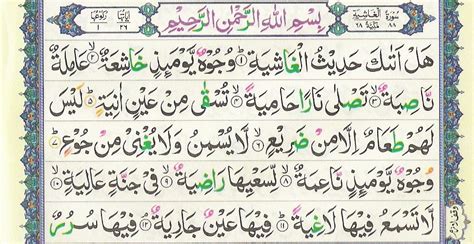 سُوْرَةُ الْغَاشِيَةِ
٨٨ مَكِّيَّةٌ ٦٨
بِسْمِ اللّٰهِ الرَّحْمٰنِ الرَّحِيْمِ
اٰيَاتُهَا ٢٦
رُكُوْعُهَا ١
هَلْ اَتٰىكَ حَدِيْثُ الْغَاشِيَةِ ۱ وُجُوْهٌ يَّوْمَئِذٍ خَاشِعَةٌ ۲ عَامِلَةٌ
نَّاصِبَةٌ ۳ تَصْلٰى نَارًا حَامِيَةً ۴ تُسْقٰى مِنْ عَيْنٍ اٰنِيَةٍ ۵ لَيْسَ
لَهُمْ طَعَامٌ اِلَّا مِنْ ضَرِيْعٍ ۶ لَّا يُسْمِنُ وَلَا يُغْنِيْ مِنْ جُوْعٍ ۷
وُجُوْهٌ يَّوْمَئِذٍ نَّاعِمَةٌ ۸ لِّسَعْيِهَا رَاضِيَةٌ ۹ فِيْ جَنَّةٍ عَالِيَةٍ ۱۰
لَّا تَسْمَعُ فِيْهَا لَاغِيَةً ۱۱ فِيْهَا عَيْنٌ جَارِيَةٌ ۱۲ فِيْهَا سُرُرٌ